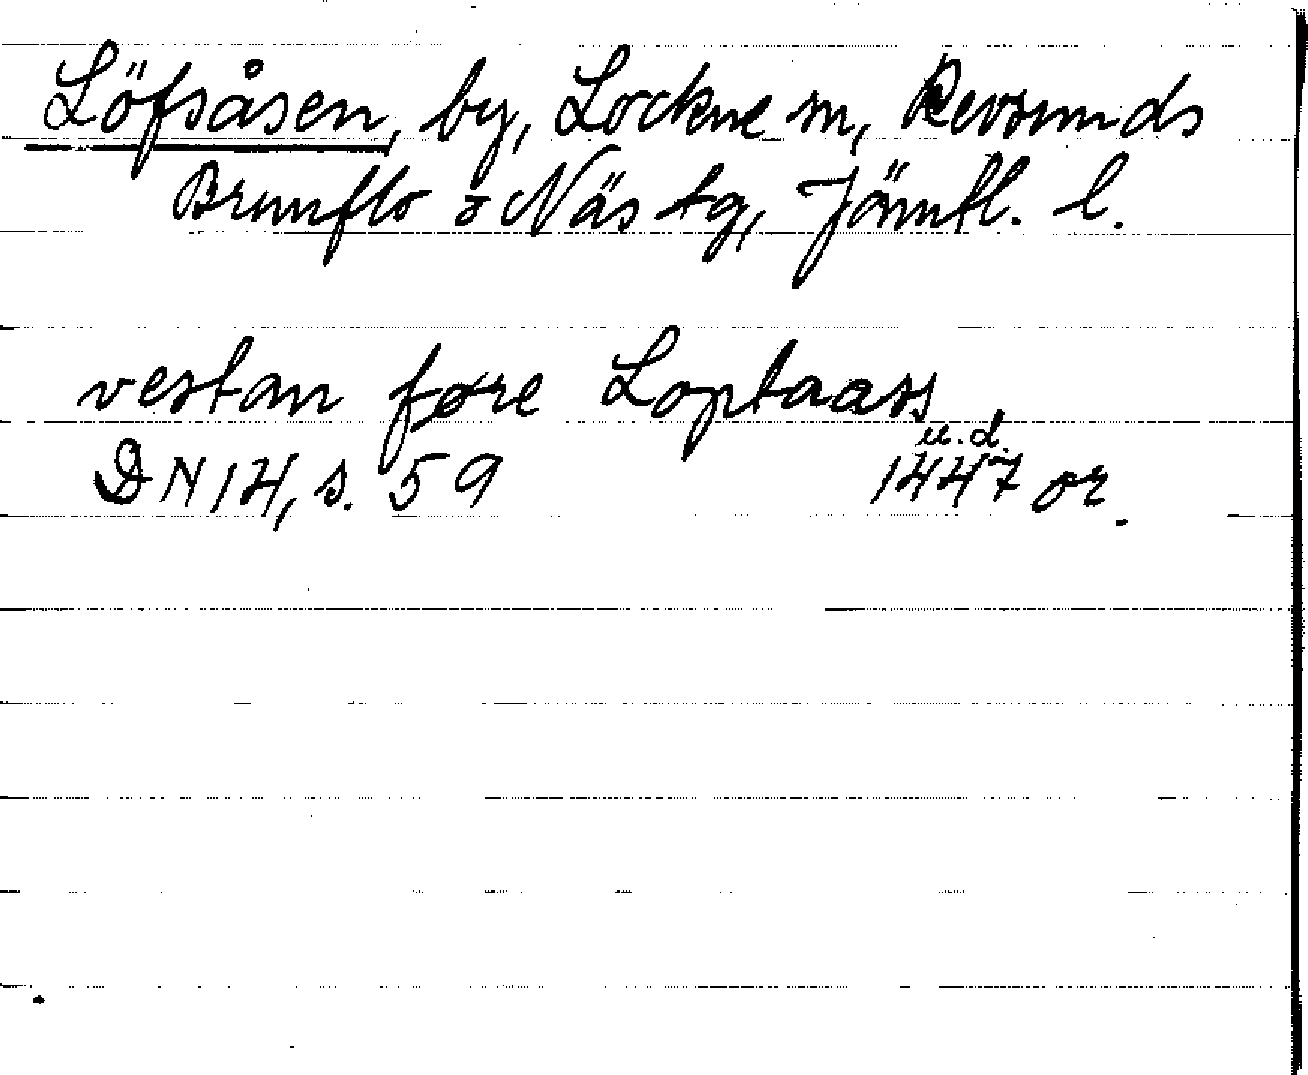 Löfsåsen, by, Lockne sn, Revsunds
Brunflo o Näs tg, Jämtl. l.
vestan føre Loptaass
u.d.
DN 14, s. 59 1447 or.